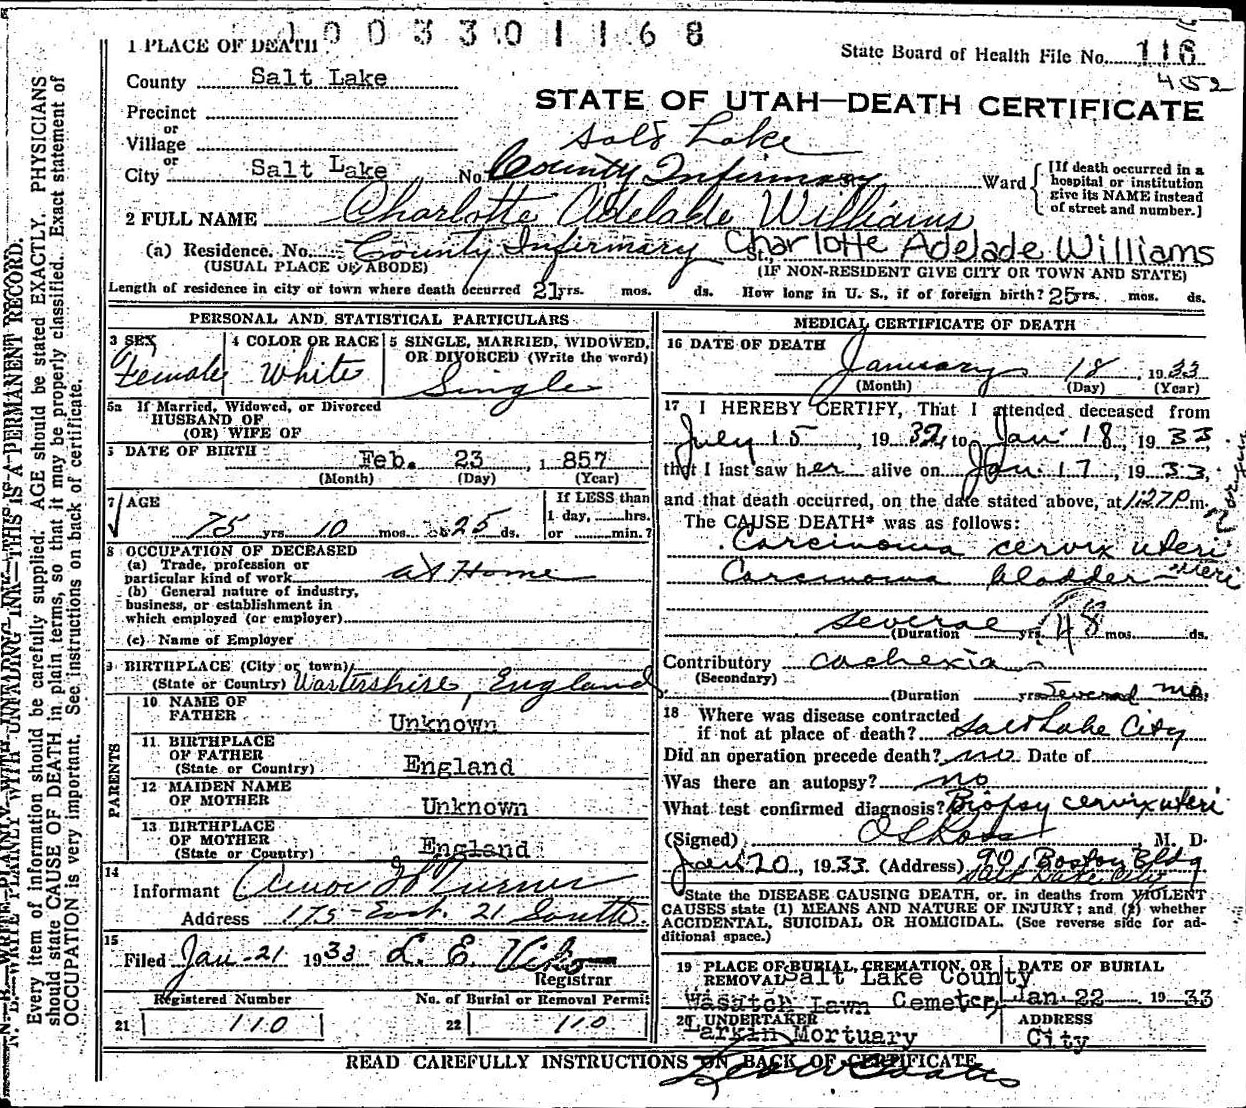 0 0 3 3 0 1 1 6 8
1 PLACE OF DEATH
State Board of Health File No. 116
452
County Salt Lake
STATE OF UTAH—DEATH CERTIFICATE
Precinct
or
Village
or
Salt Lake
City Salt Lake No. County Infirmary St. Ward
[If death occurred in a
hospital or institution
give its NAME instead
of street and number.]
2 FULL NAME Charlotte Adelade Williams
(a) Residence. No. County Infirmary St., Charlotte Adelade Williams
(USUAL PLACE OF ABODE) (IF NON-RESIDENT GIVE CITY OR TOWN AND STATE)
Length of residence in city or town where death occurred 21 yrs. mos. ds. How long in U. S., if of foreign birth? 25 yrs. mos. ds.
PERSONAL AND STATISTICAL PARTICULARS
3 SEX 4 COLOR OR RACE 5 SINGLE, MARRIED, WIDOWED, OR DIVORCED (Write the word)
Female White Single
5a If Married, Widowed, or Divorced
HUSBAND OF
(OR) WIFE OF
DATE OF BIRTH
Feb. 23, 1857
(Month) (Day) (Year)
7 AGE
75 yrs. 10 mos. 25 ds.
If LESS than
1 day, hrs.
or min.?
8 OCCUPATION OF DECEASED
(a) Trade, profession or
particular kind of work at Home
(b) General nature of industry,
business, or establishment in
which employed (or employer)
(c) Name of Employer
9 BIRTHPLACE (City or town)
(State or Country) England
PARENTS
10 NAME OF
FATHER Unknown
11 BIRTHPLACE
OF FATHER
(State or Country) England
12 MAIDEN NAME
OF MOTHER Unknown
13 BIRTHPLACE
OF MOTHER
(State or Country) England
14
Informant Turner
Address 175 East. 21 South.
15
Filed Jan-21 1933 L. E.
Registrar
Registered Number No. of Burial or Removal Permit
21 110 22 110
MEDICAL CERTIFICATE OF DEATH
16 DATE OF DEATH
January 18, 1933
(Month) (Day) (Year)
17 I HEREBY CERTIFY, That I attended deceased from
July 15, 1932, to Jan. 18, 1933,
that I last saw her alive on Jan. 17, 1933,
and that death occurred, on the date stated above, at 1:27 P m.
The CAUSE DEATH* was as follows:
Carcinoma cervix uteri
Carcinoma bladder
several
(Duration yrs. 48 mos. ds.
Contributory cachexia
(Secondary)
(Duration yrs. Several mo. ds.
18 Where was disease contracted
if not at place of death? Salt Lake City
Did an operation precede death? no Date of
Was there an autopsy? no
What test confirmed diagnosis? Biopsy cervix uteri
(Signed) M. D.
Jan 20, 1933. (Address) 901 Boston Bldg
Salt Lake City
State the DISEASE CAUSING DEATH, or, in deaths from VIOLENT
CAUSES state (1) MEANS AND NATURE OF INJURY; and (2) whether
ACCIDENTAL, SUICIDAL OR HOMICIDAL. (See reverse side for ad-
ditional space.)
19 PLACE OF BURIAL, CREMATION, OR REMOVAL DATE OF BURIAL
Salt Lake County
Wasatch Lawn Cemetery Jan. 22 1933
20 UNDERTAKER ADDRESS
Larkin Mortuary City
READ CAREFULLY INSTRUCTIONS ON BACK OF CERTIFICATE
N. B.—WRITE PLAINLY WITH UNFADING INK—THIS IS A PERMANENT RECORD.
Every item of information should be carefully supplied. AGE should be stated EXACTLY. PHYSICIANS
should state CAUSE OF DEATH in plain terms, so that it may be properly classified. Exact statement of
OCCUPATION is very important. See instructions on back of certificate.